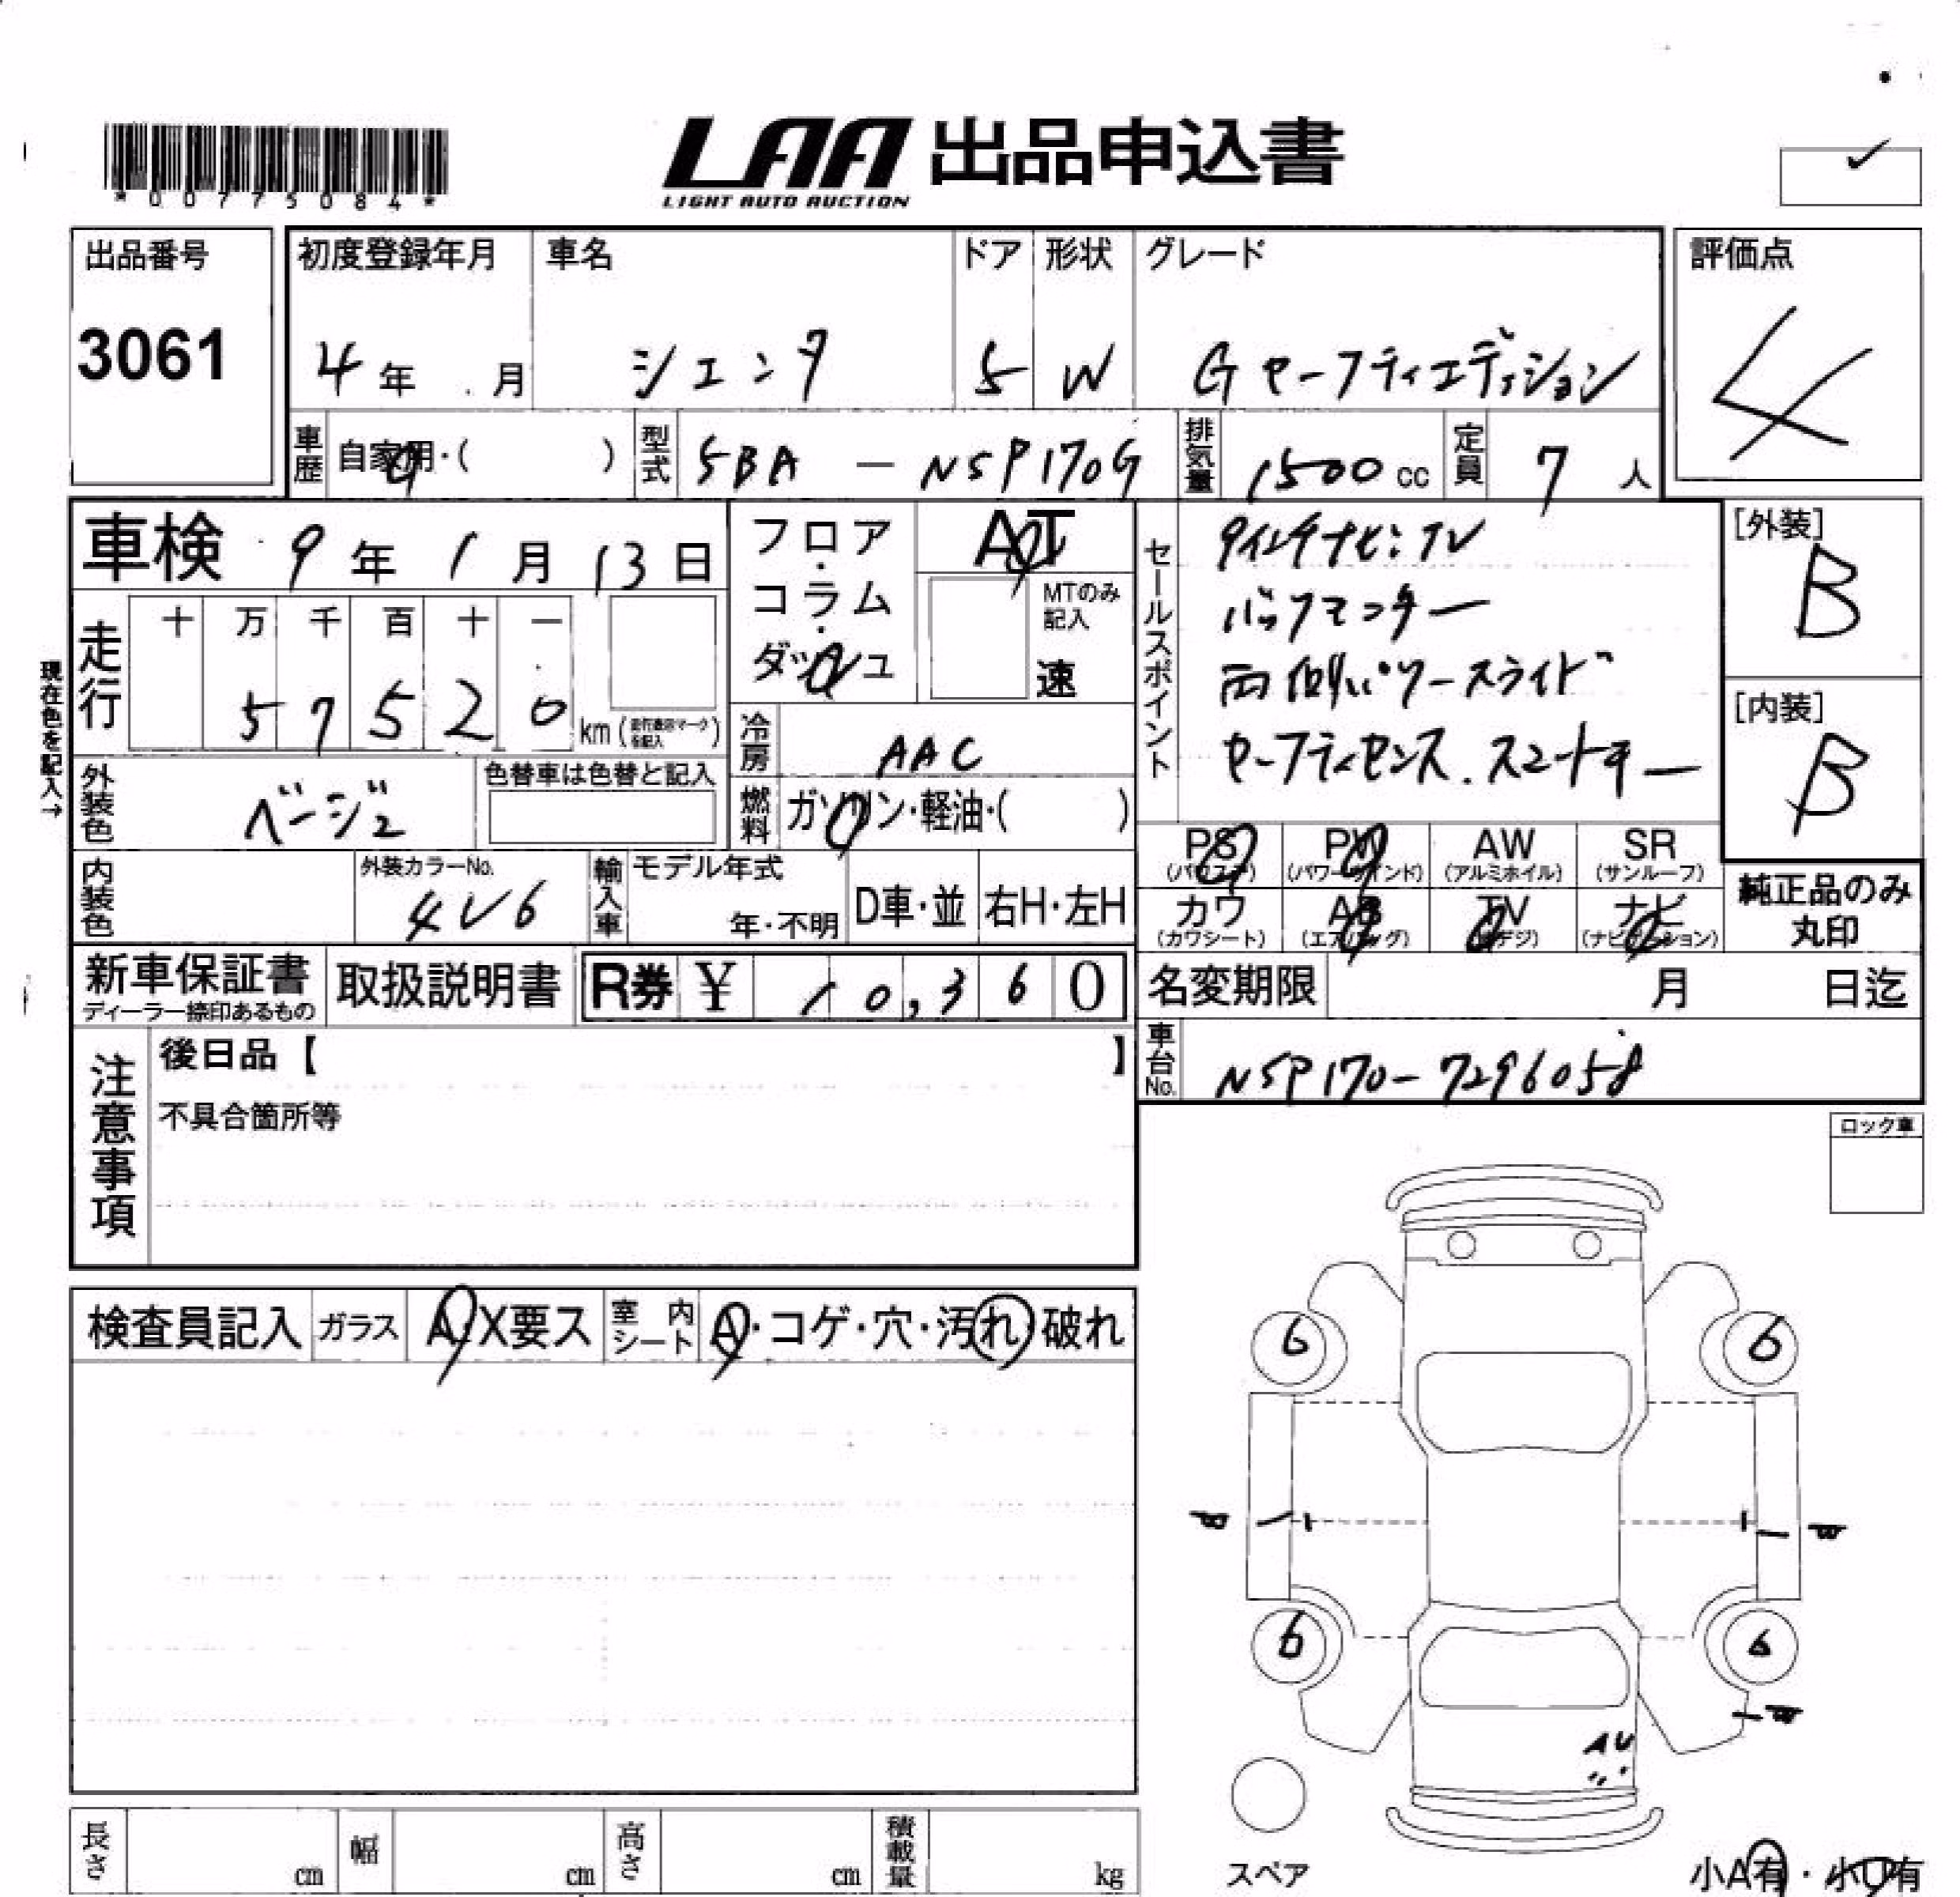 *00775084*
LAA 出品申込書
LIGHT AUTO AUCTION
出品番号 初度登録年月 車名 ドア 形状 グレード 評価点
3061 4年 月 シエンタ 5 W Gセーフティエディション 4
車歴 自家用・( ) 型式 5BA - NSP170G 排気量 1500 cc 定員 7人
車検 9年 1月 13日 フロア・コラム・ダッシュ AT
MTのみ記入
速
現在色を記入→
走行 十 万 千 百 十 一
5 7 5 2 0 km
冷房 AAC
外装色 ベージュ 色替車は色替と記入
燃料 ガソリン・軽油・( )
内装色 外装カラーNo. 4V6 輸入車 モデル年式 年・不明 D車・並 右H・左H
新車保証書 取扱説明書 R券 ¥ 10,360
ディーラー捺印あるもの
セールスポイント
9インチナビ:TV
バックモニター
両側パワースライド
セーフティセンス.スマートキー
[外装]
B
[内装]
B
PS (パワステ) PW (パワーウインド) AW (アルミホイル) SR (サンルーフ)
カワ (カワシート) AB (エアバッグ) TV (アナデジ) ナビ (ナビゲーション)
純正品のみ丸印
名変期限 月 日迄
車台No. NSP170-7296058
注意事項
後日品【 】
不具合箇所等
ロック車
検査員記入 ガラス A・X要ス 室内シート A・コゲ・穴・汚れ・破れ
6 6
6 6
AU
スペア
小A有・小U有
長さ cm 幅 cm 高さ cm 積載量 kg